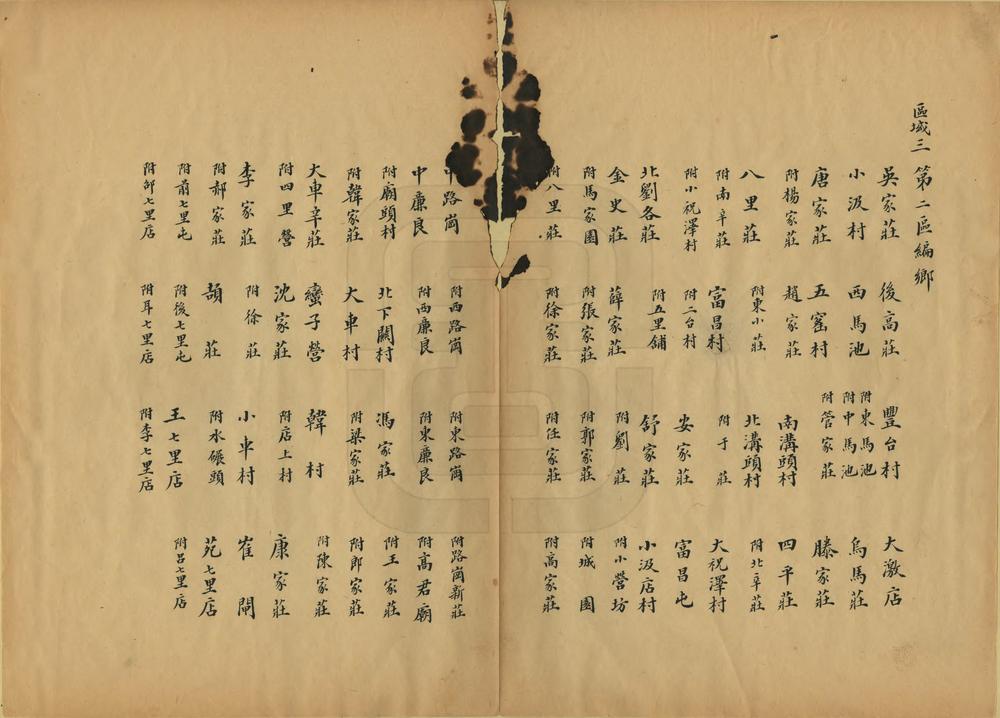 區域三 第二區編鄉
吳家莊 後高莊 豐台村 大激店
小汲村 西馬池 附東馬池 附中馬池 烏馬莊
唐家莊 五窰村 附管家莊 滕家莊
附楊家莊 趙家莊 南溝頭村 四平莊
八里莊 附東小莊 北溝頭村 附北辛莊
附南辛莊 富昌村 附于莊 大祝澤村
附小祝澤村 附二台村 安家莊 富昌屯
北劉各莊 附五里鋪 舒家莊 小汲店村
金史莊 薛家莊 附劉莊 附小營坊
附馬家園 附張家莊 附郭家莊 附城園
附八里莊 附徐家莊 附任家莊 附高家莊
中路崗 附西路崗 附東路崗 附路崗新莊
中廉良 附西廉良 附東廉良 附高君廟
附廟頭村 北下關村 馮家莊 附王家莊
附韓家莊 大車村 附梁家莊 附郎家莊
大車辛莊 蠻子營 韓村 附陳家莊
附四里營 沈家莊 附店上村 康家莊
李家莊 附徐莊 小車村 崔閘
附郝家莊 頡莊 附水碾頭 苑七里店
附前七里屯 附後七里屯 王七里店 附呂七里店
附七里店 附耳七里店 附李七里店